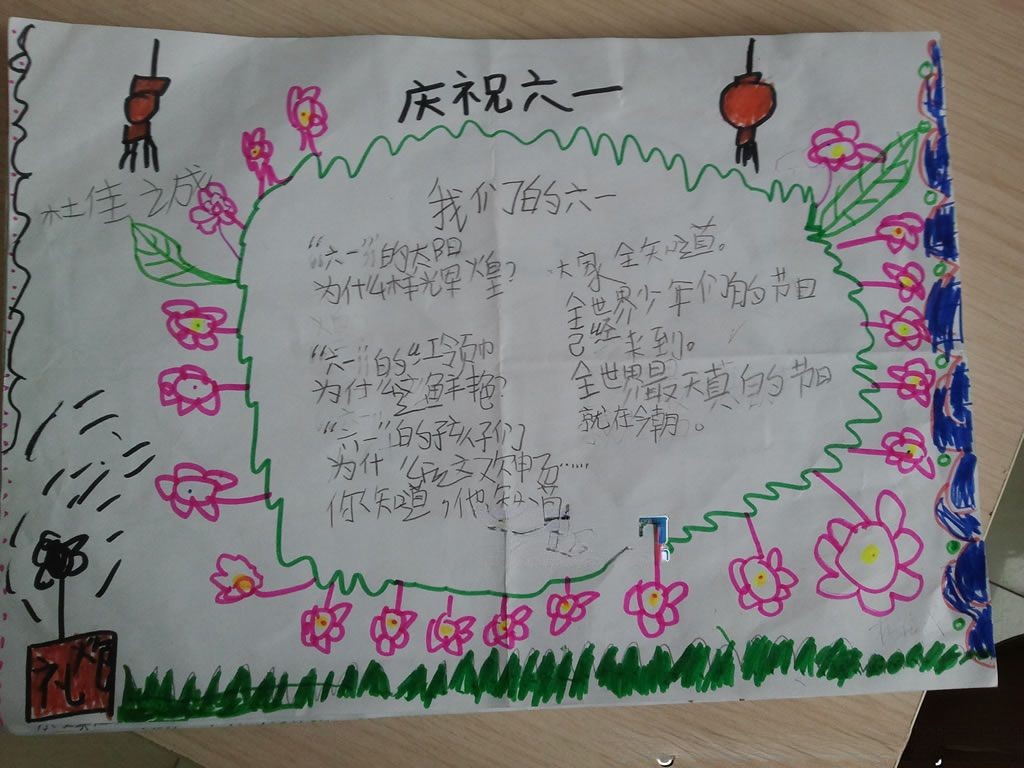 庆祝六一
杜佳之成
我们的六一
“六一”的太阳
为什么样辉煌？
“六一”的“工领巾
为什么这鲜艳？
“六一”的孩仔们
为什么这次神气……
你知道，他知道
大家全知道。
全世界少年们的节日
已经来到。
全世界最天真的节日
就在今朝。
礼炮